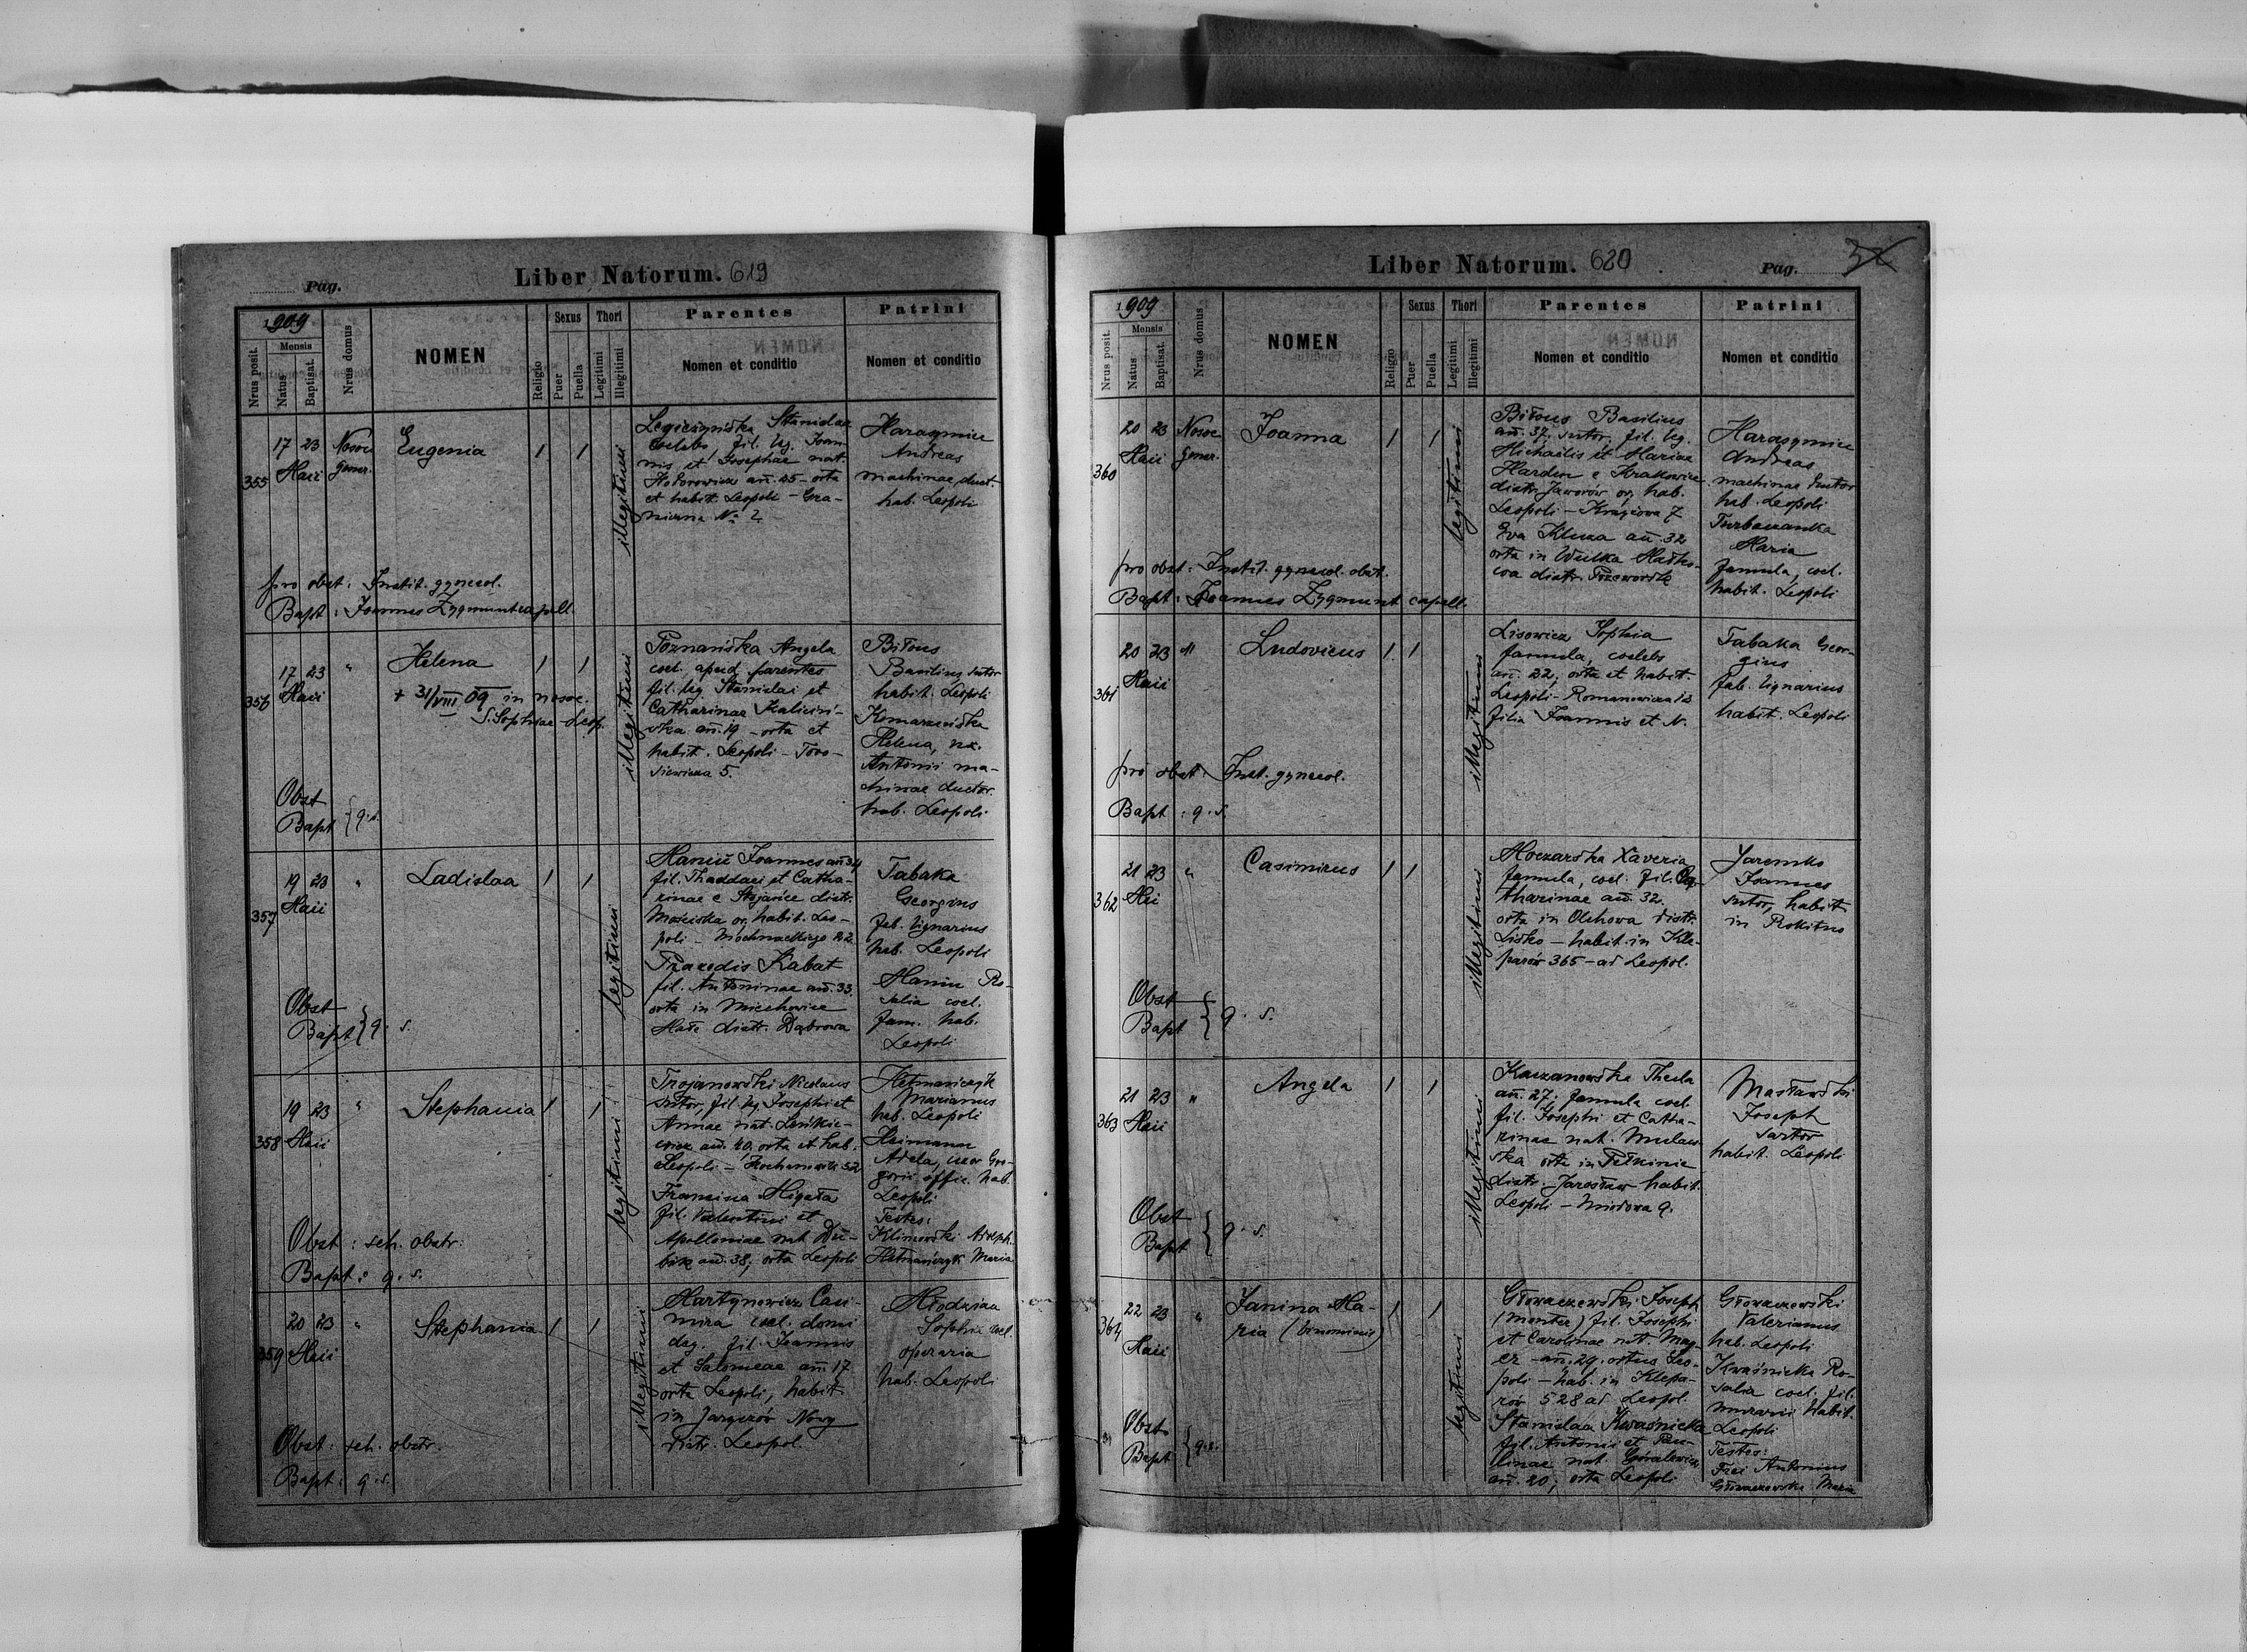 Pag.
Liber Natorum. 619
1909
Nrus posit.
Mensis
Natus
Baptisat.
Nrus domus
NOMEN
Religio
Sexus
Puer
Puella
Thori
Legitimi
Illegitimi
Parentes
Nomen et conditio
Patrini
Nomen et conditio
355
17 23
Maii
Nosoc
gener.
Eugenia
1 1
illegitimi
Stanislaa
coelebs, fil. leg. Joan-
nis et Josephae nat.
Hodorowicz an. 25 - orta
et habit. Leopoli - Gra-
niczna No 2
Harasymiu
Andreas
machinae duct.
hab. Leopoli
pro obst: Instit. gynecol.
Bapt: Joannes Zygmunt capell.
356
17 23
Maii
"
Helena
+ 31/VIII 09 in nosoc.
S. Sophiae - Leop.
1 1
illegitimi
Poznańska Angela
coel. apud parentes
fil. leg. Stanislai et
Catharinae Kaliciń-
ska an. 19 - orta et
habit. Leopoli - Toro-
siewicza 5.
Biłous
Basilius sutor
habit. Leopoli
Helena, ux.
Antonii ma-
chinae ductor.
hab. Leopoli
Obst
Bapt } q. s.
357
19 23
Maii
"
Ladislaa
1 1
legitimi
Joannes an 34
fil. Thaddaei et Catha-
rinae e Stojańce distr.
Mościska or, habit. Leo-
poli - Mochnackiego 22.
Praxedis Kabat
fil. Antoninae an. 33.
orta in Miechowice
Małe distr. Dąbrowa
Tabaka
Georgius
fab. lignarius
hab. Leopoli
Ro-
salia coel.
fam. hab.
Leopoli
Obst
Bapt } q. s.
358
19 23
Maii
"
Stephania
1 1
legitimi
Trojanowski Nicolaus
sutor, fil. leg. Josephi et
Annae nat. Leńkie-
wicz an. 40, orta et hab.
Leopoli - 52
Francisca Migała
fil. Valentini et
Apolloniae nat
an. 38, orta Leopoli
Hetmańczyk
Marianus
hab. Leopoli
Heimann
Adela, uxor Gre-
gorii offic. hab.
Leopoli
Testes:
Klimowski Adolph.
Hetmańczyk Maria
Obst: sch. obstr.
Bapt: q. s.
359
20 23
Maii
"
Stephania
1 1
illegitimi
Martynowicz Casi-
mira coel. domi
deg. fil. Joannis
et Salomeae an 17
orta Leopoli, habit.
in Jaryczów Nowy
distr. Leopol.
Młodzian
Sophia coel.
operaria
hab. Leopoli
Obst: sch. obstr.
Bapt: q. s.
Liber Natorum. 620
Pag.
1909
Nrus posit.
Mensis
Natus
Baptisat.
Nrus domus
NOMEN
Religio
Sexus
Puer
Puella
Thori
Legitimi
Illegitimi
Parentes
Nomen et conditio
Patrini
Nomen et conditio
360
20 23
Maii
Nosoc
gener.
Joanna
1 1
legitimi
Biłous Basilius
an. 37, sutor, fil. leg.
Michaelis et Mariae
e Krakowice
distr. Jaworów or, hab.
Leopoli - 7
Eva Kluza an. 32
orta in Wulka Małko-
wa distr. Przeworsk
Harasymiu
Andreas
machinae ductor
hab. Leopoli
Maria
famula, coel.
habit. Leopoli
pro obst: Instit. gynecol. obst.
Bapt: Joannes Zygmunt capell.
361
20 23
Maii
"
Ludovicus
1 1
illegitimi
Lisowicz Sophia
famula, coelebs
an. 22, orta et habit.
Leopoli - Romanowicza 12
filia Joannis et N.
Tabaka Geor-
gius
fab. lignarius
habit. Leopoli
pro obst: Inst. gynecol.
Bapt: q. s.
362
21 23
Maii
"
Casimirus
1 1
illegitimi
Moczarska Xaveria
famula, coel. fil. Ca-
tharinae an. 32.
orta in Olchowa distr.
Lisko - habit. in Kle-
parów 365 - ad Leopol.
Jaremko
Joannes
sutor, habit
in Rokitno
Obst
Bapt } q. s.
363
21 23
Maii
"
Angela
1 1
illegitimi
Kaczanowska Thecla
an. 27, famula coel.
fil. Josephi et Catha-
rinae nat.
ska orta in Pełkinie
distr. Jarosław habit.
Leopoli - Miodowa 9.
Masławski
Joseph
sartor
habit. Leopoli
Obst
Bapt } q. s.
364
22 23
Maii
"
Janina Ma-
ria (binominis)
1 1
legitimi
Głowaczewski Joseph
(monter) fil. Josephi
et Carolinae nat. May-
er - an. 29. ortus Leo-
poli - hab. in Klepa-
rów 528 ad Leopol.
Stanislaa Kwaśnicka
fil. Antonii et Pau-
linae nat. Góralewicz
an. 20, orta Leopoli
Głowaczewski
Valerianus
hab. Leopoli
Kwaśnicka Ro-
salia coel. fil.
murarii habit.
Leopoli
Testes:
Frei Antonius
Głowaczewska Maria
Obst.
Bapt } q. s.